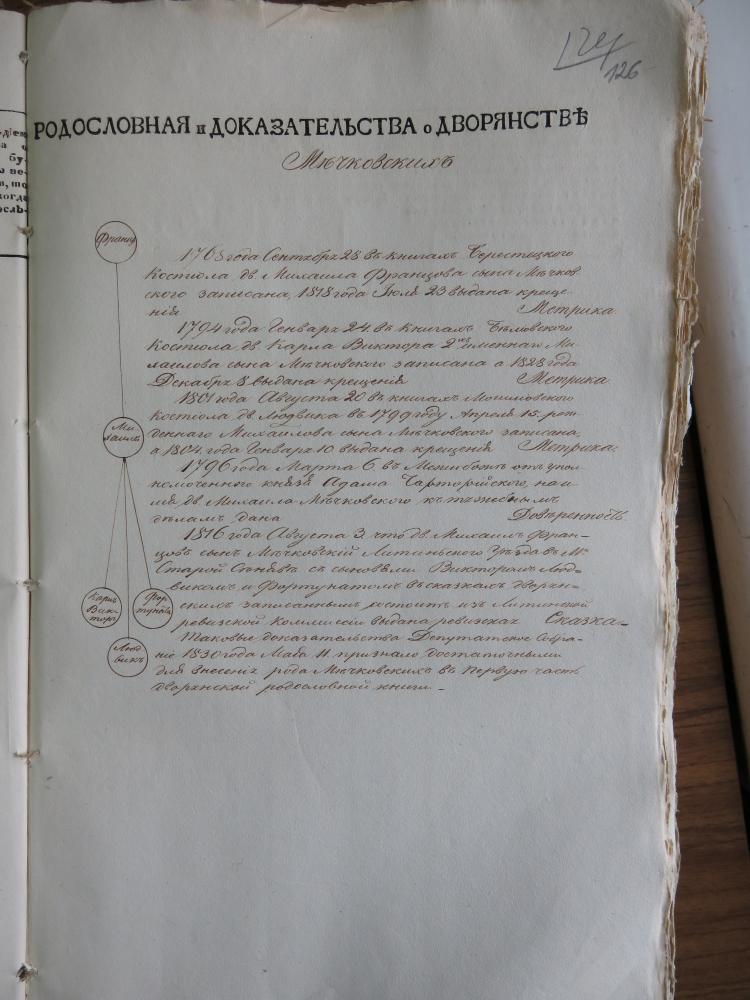 124
126
РОДОСЛОВНАЯ и ДОКАЗАТЕЛЬСТВА о ДВОРЯНСТВѢ
Мѣчковскихъ
Францъ
1768 года Сентября 28 въ книгахъ Берестецкого
Костіола дв. Михаила Францова сына Мѣчков-
ского записана, 1818 года Іюля 23 выдана креще-
нія Метрика
1794 года Генваря 24 въ книгахъ
Костіола дв. Карла Виктора 2хъ именнаго Ми-
хаилова сына Мѣчковского записана а 1828 года
Декабря 8 выдана крещенія Метрика
1801 года Августа 20 въ книгахъ
Костіола дв. Людвика въ 1799 году Апреля 15. рож-
деннаго Михаилова сына Мѣчковского записана,
а 1804 года Генваря 10 выдана крещенія Метрика.
Ми-
хаилъ
1796 года Марта 6 въ Межибожѣ отъ упол-
номоченного князя Адама Чарторійского, на имя
дв. Михаила Мѣчковского къ тяжебнымъ
дѣламъ дана Довѣренность
1816 года Августа 3. что дв. Михаилъ Фран-
цовъ сынъ Мѣчковскій Литинского Уѣзда въ Мѣ
Старой Синявѣ съ сыновями Викторомъ Люд-
викомъ и Фортунатомъ въ сказкахъ дворян-
скихъ записаннымъ состоитъ изъ Литинской
ревизской Коммисіи выдана ревизская Сказка-
Карлъ
Вик-
торъ
Фор-
тунатъ
Люд-
викъ
Таковые доказательства Депутатское Собра-
ніе 1830 года Маія 11 признало достаточными
для внесенія рода Мѣчковскихъ въ первую часть
дворянской родословной книги. -